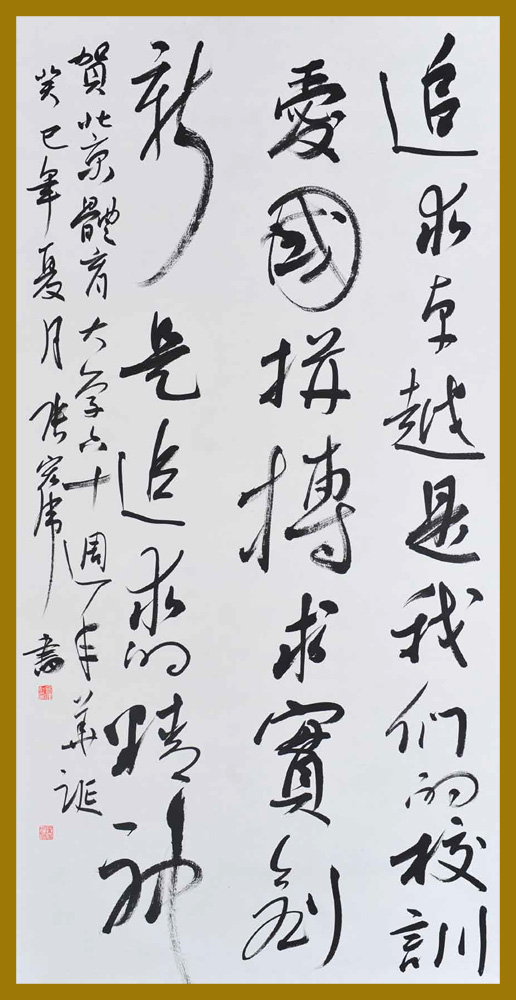 追求卓越是我们的校訓
愛國拼搏求實創
新是追求的精神
賀北京體育大學六十週年華誕
癸巳年夏月張宏偉書